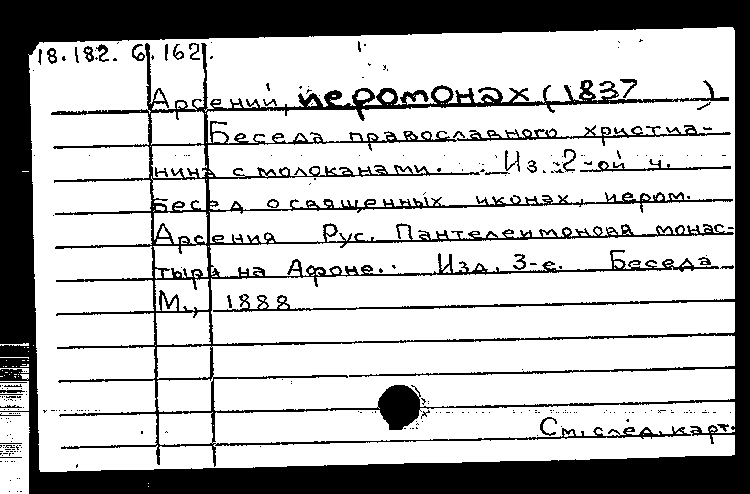 18.182. 6.162.
Арсений, иеромонах (1837 )
Беседа православного христиа-
нина с молоканами. . Из 2-ой ч.
бесед о священных иконах, иером.
Арсения Рус. Пантелеимонова монас-
тыря на Афоне.. Изд. 3-е. Беседа
М., 1888
См. след. карт.